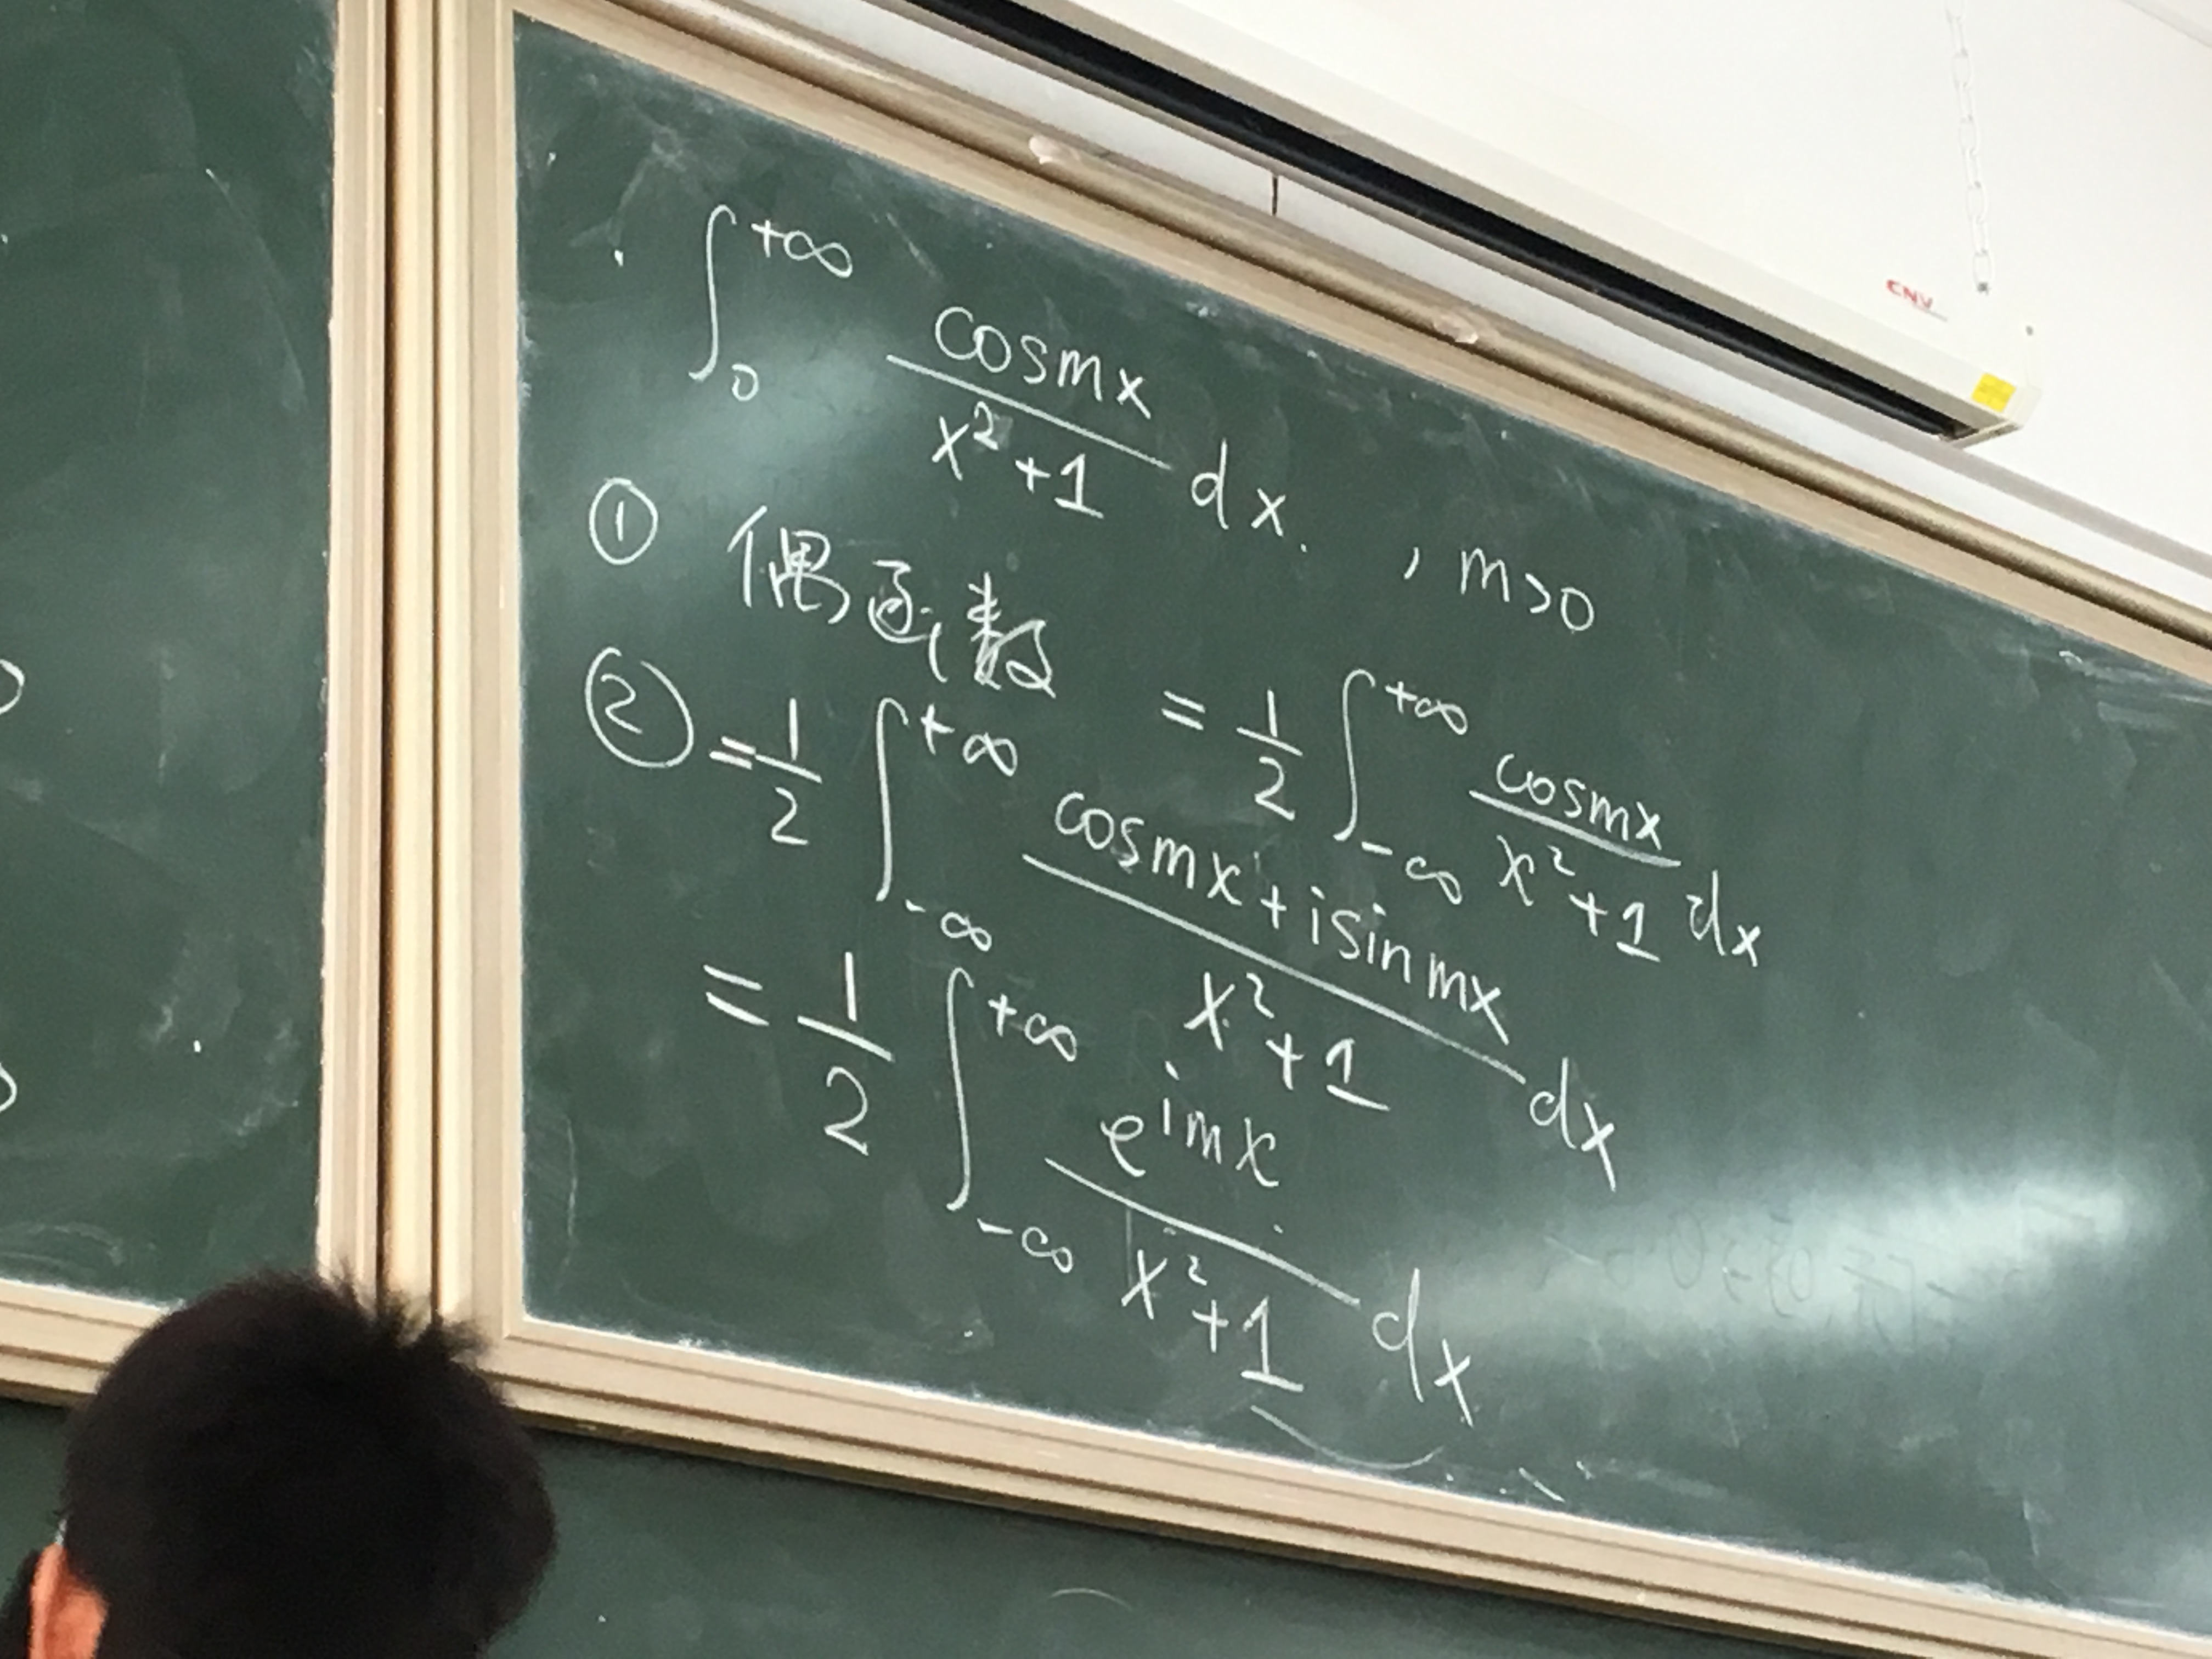 ∫₀^{+∞} cosmx / (x²+1) dx. , m>0
① 偶函数 = 1/2 ∫_{-∞}^{+∞} cosmx / (x²+1) dx
② = 1/2 ∫_{-∞}^{+∞} (cosmx + isinmx) / (x²+1) dx
= 1/2 ∫_{-∞}^{+∞} e^{imx} / (x²+1) dx
CNV